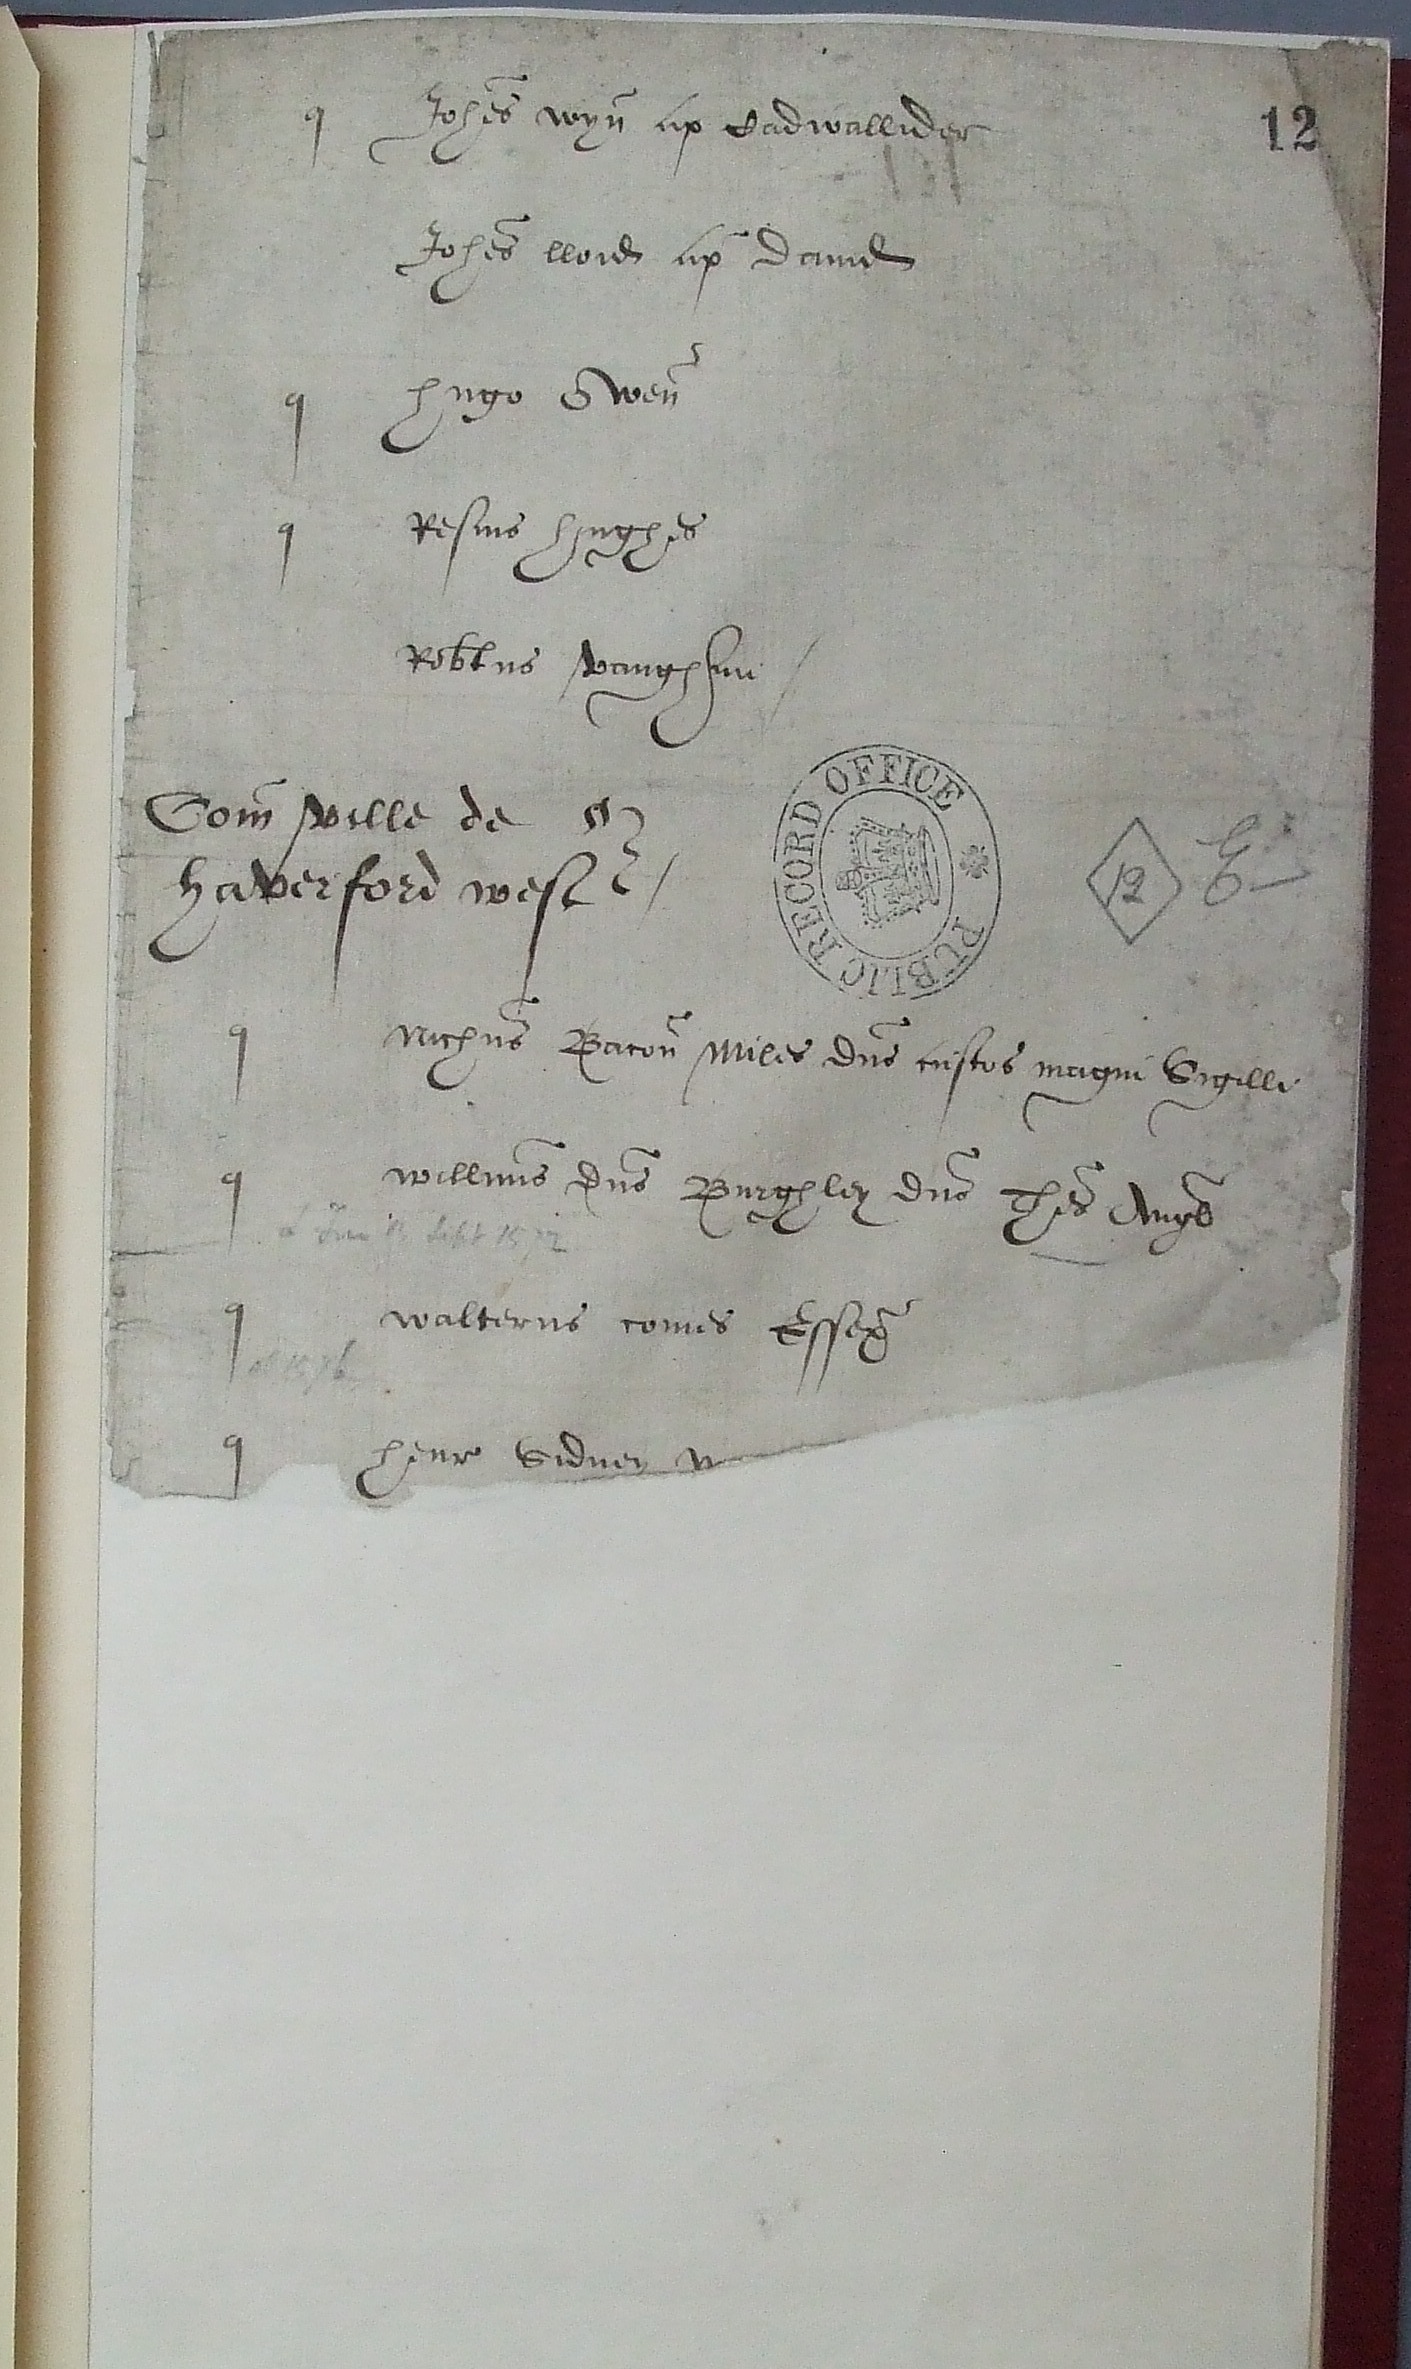 12
q Johēs wyn̄ ap Cadwallider
101
Johēs lloid ap̄ Dauid
q Hugo Owen̄
q Resius Hughes
Robtus vaughan /
Com̄ ville de
Haverford west /
PUBLIC RECORD OFFICE
12 E
q Nichūs Bacon̄ Miles dn̄s custos magni Sigilli
q willm̄us dn̄s Burghley dn̄s Thes̄ Angł
Sept 1572
q walterus comes Essex̄
1576
q Henr Sidney